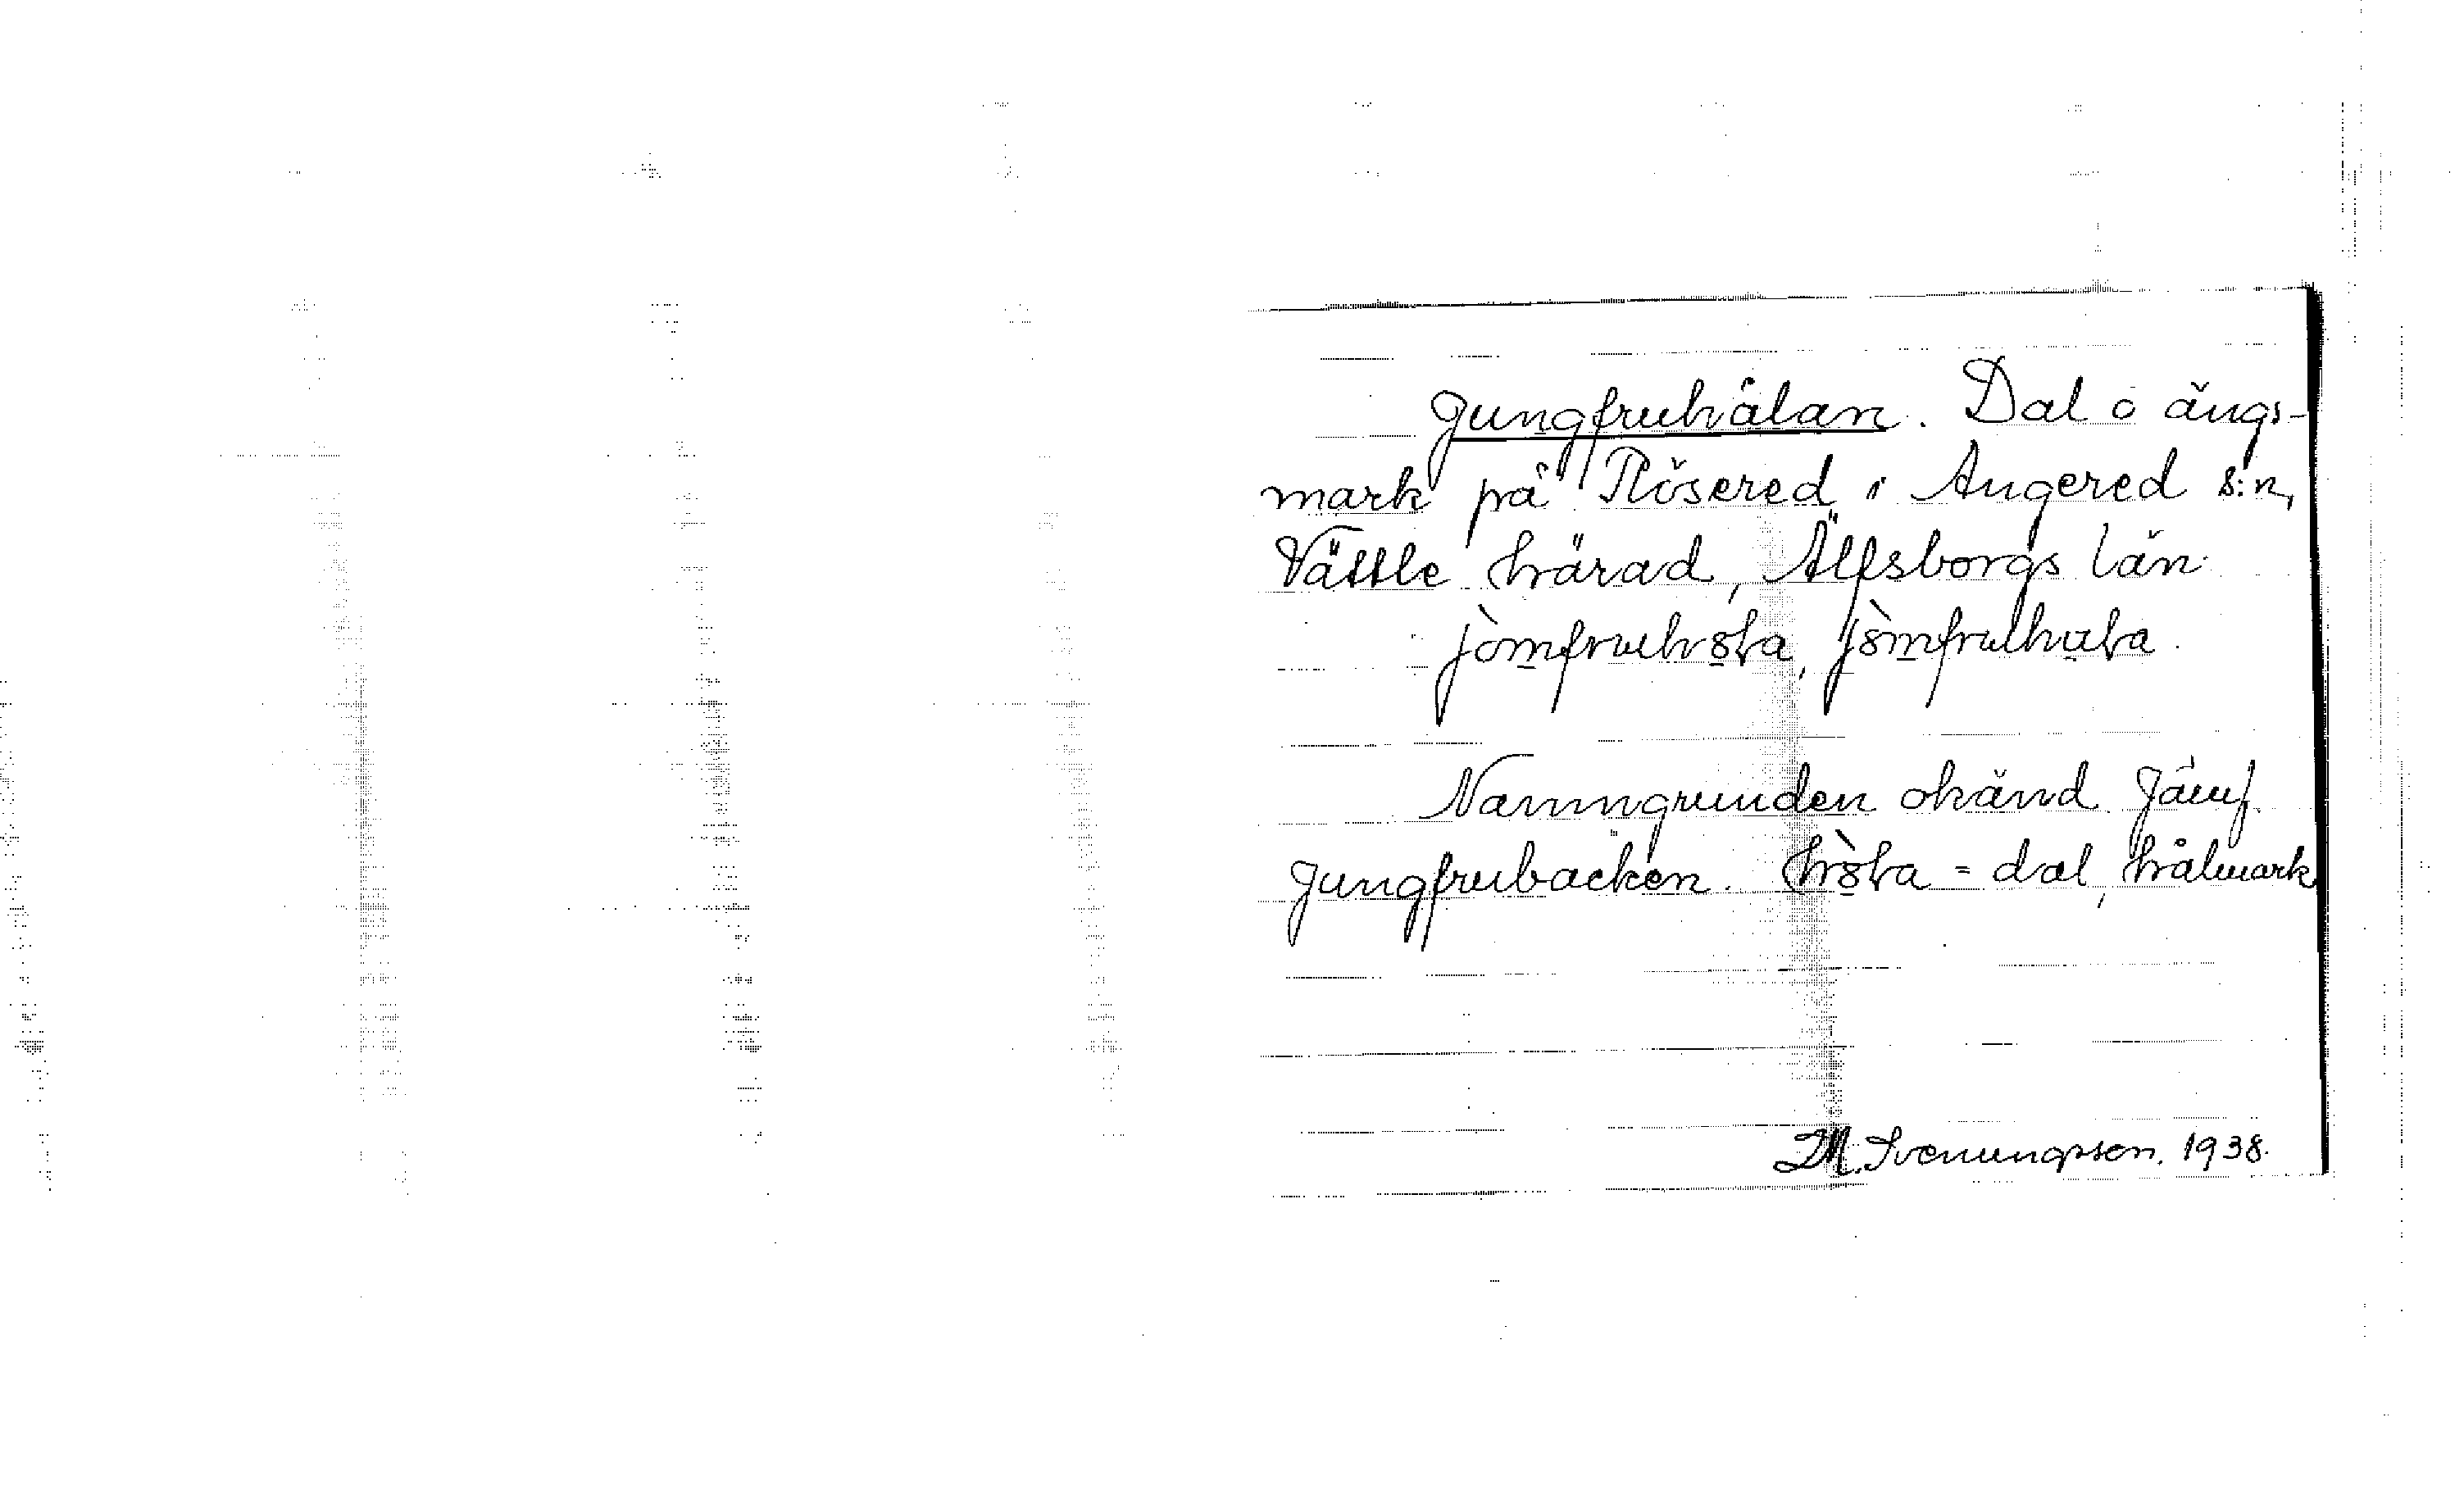 Jungfruhålan. Dal o ängs-
mark på Rösered i Angered s:n,
Vättle härad, Älfsborgs län.
jòmfruhola, jòmfruhula.
Namngrunden okänd. Jämf.
Jungfrubacken. hòla = dal, hålmark
D.M. Svenungsson. 1938.